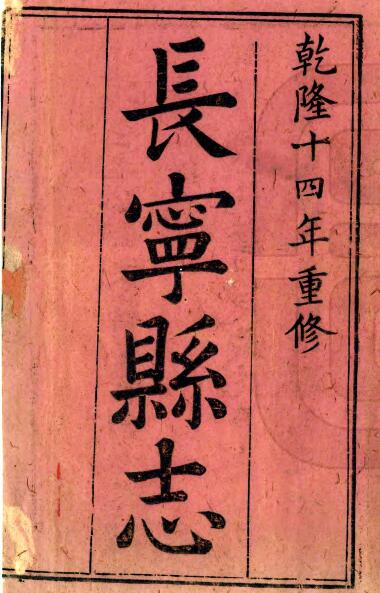 乾隆十四年重修
長寧縣志